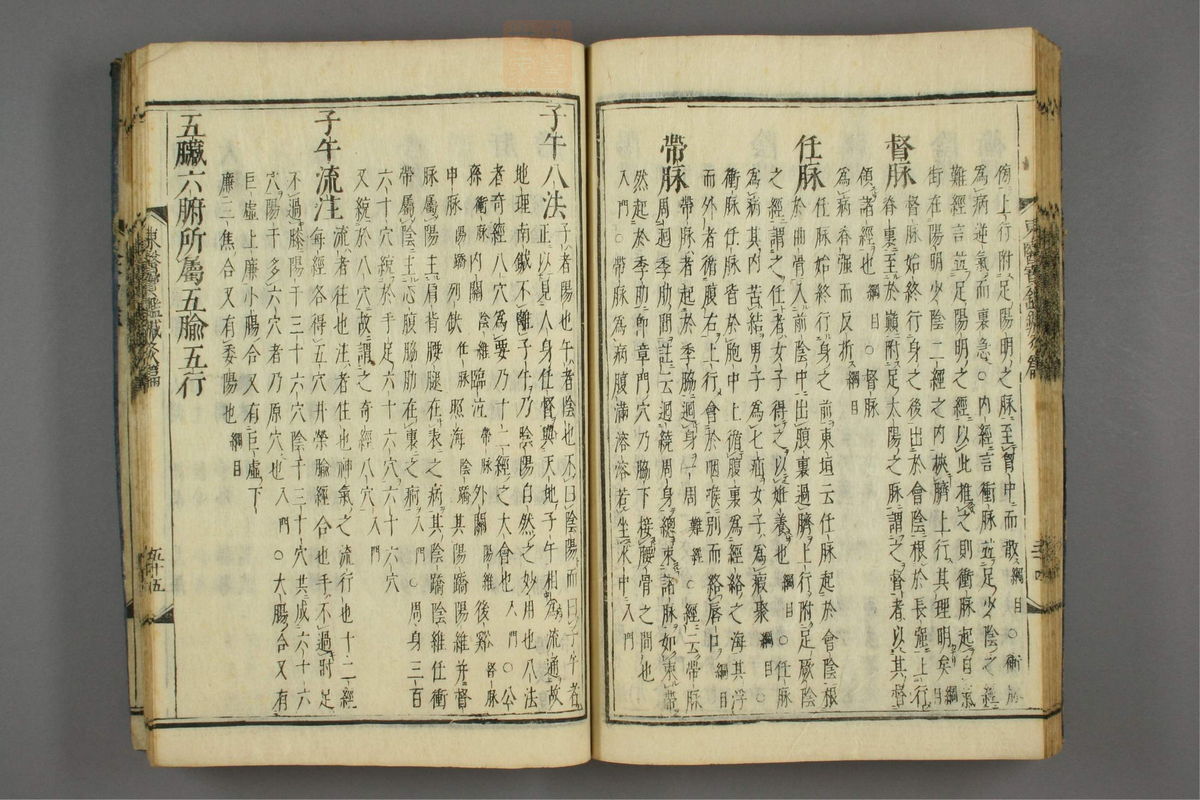 俠上行附足陽明之脉至胸中而散綱目○衝脉
爲病逆氣而裏急○內經言衝脉並足少陰之經
難經言並足陽明之經以此推之則衝脉起自氣
街在陽明少陰二經之內挾臍上行其理明矣綱目
督脉 督脉始終行身之後出於會陰根於長強上行
脊裏至於巔附足太陽之脉謂之督者以其督
領諸經也綱目○督脉
爲病脊強而反折綱目
任脉 任脉始終行身之前東垣云任脉起於會陰根
於曲骨入前陰中出腹裏過臍上行附足厥陰
之經謂之任者女子得之以妊養也綱目○任脉
爲病其內苦結男子爲七疝女子爲瘕聚綱目
衝脉任脉皆於胞中上循腹裏爲經絡之海其浮
而外者循腹右上行會於咽喉別而絡唇口綱目
帶脉 帶脉者起於季脇迴身一周難經○經云帶脉
周迴季肋間註云迴繞周身總束諸脉如束帶
然起於季肋卽章門穴乃脇下接腰骨之間也
入門○帶脉爲病腹滿溶溶若坐水中入門
子午八法 子者陽也午者陰也不曰陰陽而曰子午者
正以見人身任督與天地子午相爲流通故
地理南鍼不離子午乃陰陽自然之妙用也八法
者奇經八穴爲要乃十二經之大會也入門○公
孫衝脉內關陰維臨泣帶脉外關陽維後谿督脉
申脉陽蹻列缺任脉照海陰蹻其陽蹻陽維幷督
脉屬陽主肩背腰腿在表之病其陰蹻陰維任衝
帶屬陰主心腹脇肋在裏之病入門○周身三百
六十穴統於手足六十六穴六十六穴
又統於八穴故謂之奇經八穴入門
子午流注 流者往也注者住也神氣之流行也十二經
每經各得五穴井滎腧經合也手不過肘足
不過膝陽干三十六穴陰干三十穴共成六十六
穴陽干多六穴者乃原穴也入門○大腸合又有
巨虛上廉小腸合又有巨虛下
廉三焦合又有委陽也綱目
五臟六腑所屬五腧五行
東醫寶鑑鍼灸篇
五十五